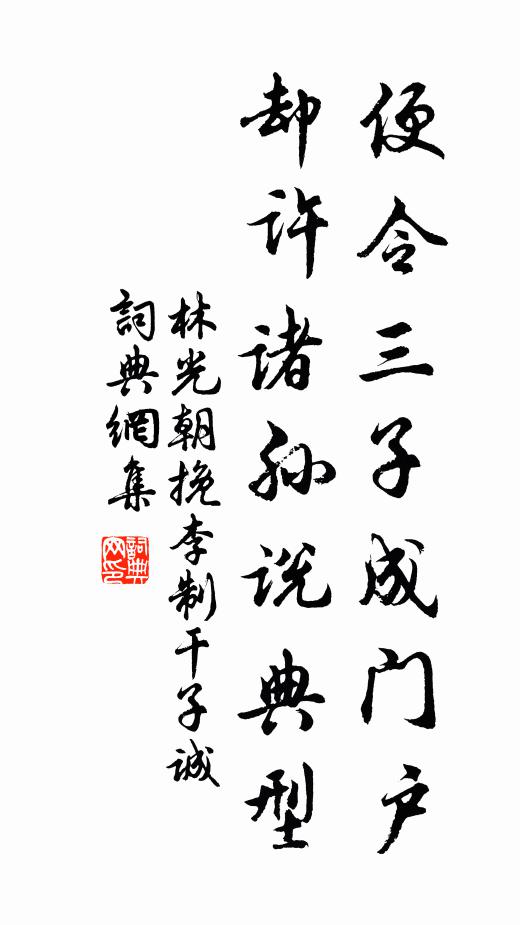 便令三子成门户
却许诸孙说典型
林光朝挽李制干子诚
詞典網集
詞典网印